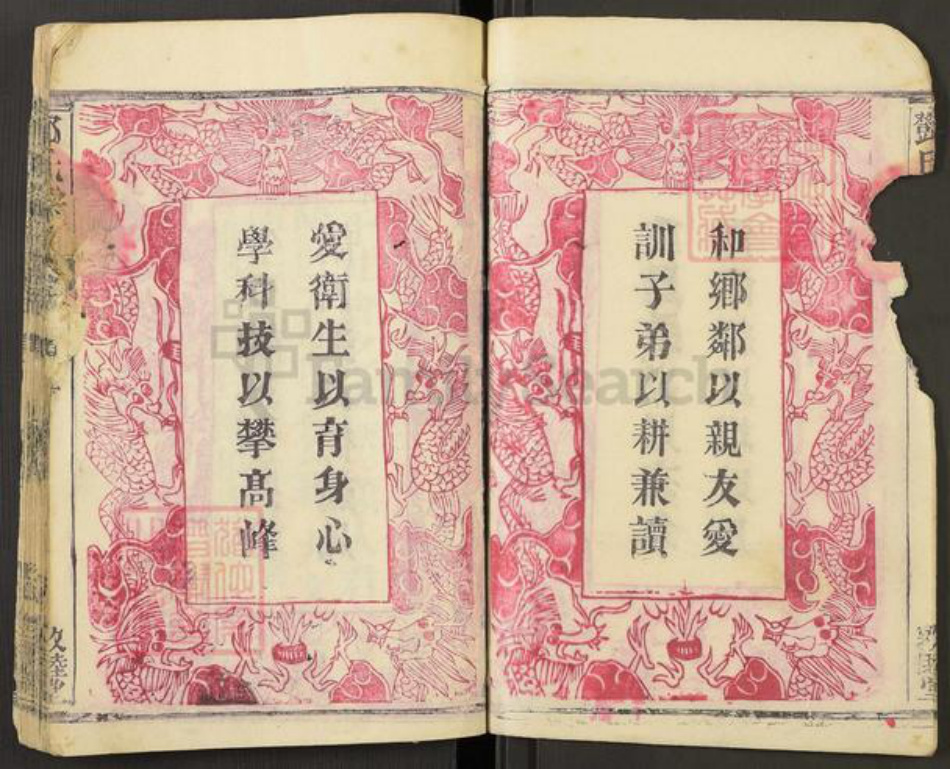 和鄉鄰以親友愛
訓子弟以耕兼讀
愛衛生以育身心
學科技以攀高峰
FamilySearch